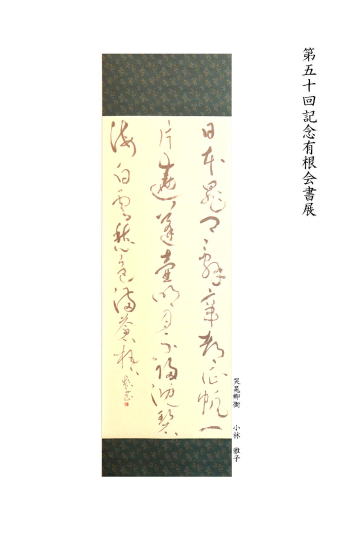 第五十回記念有根会書展
日本晁卿辞帝都征帆一
片遶蓬壷明月不帰沈碧
海白雲愁色満蒼梧
哭晁卿衡 小林 雅子